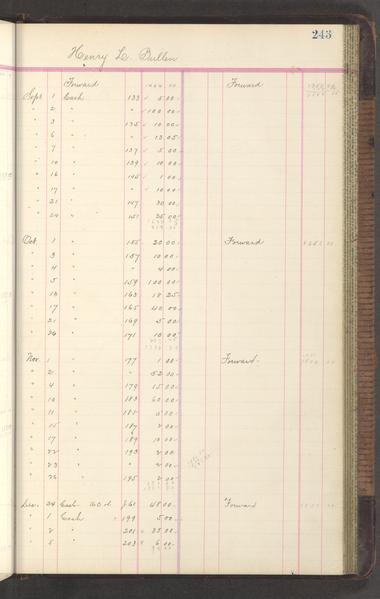 243
Henry L. Bullen
Forward Forward
Sept 1 Cash 133 5 00
" 2 " " 100 00
" 3 " 135 10 00
" 6 " " 13 05
" 7 " 137 5 00
" 10 " 139 10 00
" 16 " 145 1 00
" 17 " " 10 00
" 21 " 147 30 00
" 24 " 151 35 00
Oct. 1 " 155 20 00 Forward
" 3 " 157 10 00
" 4 " " 4 00
" 5 " 159 100 00
" 13 " 163 18 25
" 17 " 165 40 00
" 21 " 169 5 00
" 24 " 171 10 00
Nov. 1 " 177 1 00 Forward
" 2 " " 52 00
" 4 " 179 15 00
" 10 " 183 60 00
" 11 " 185 5 00
" 15 " 187 2 00
" 17 " 189 10 00
" 22 " 193 2 00
" 23 " " 2 00
" 26 " 195 2 00
Dec. 24 Cash 45 00 Forward
" 1 Cash 199 5 00
" 2 " 201 35 00
" 5 " 203 6 00